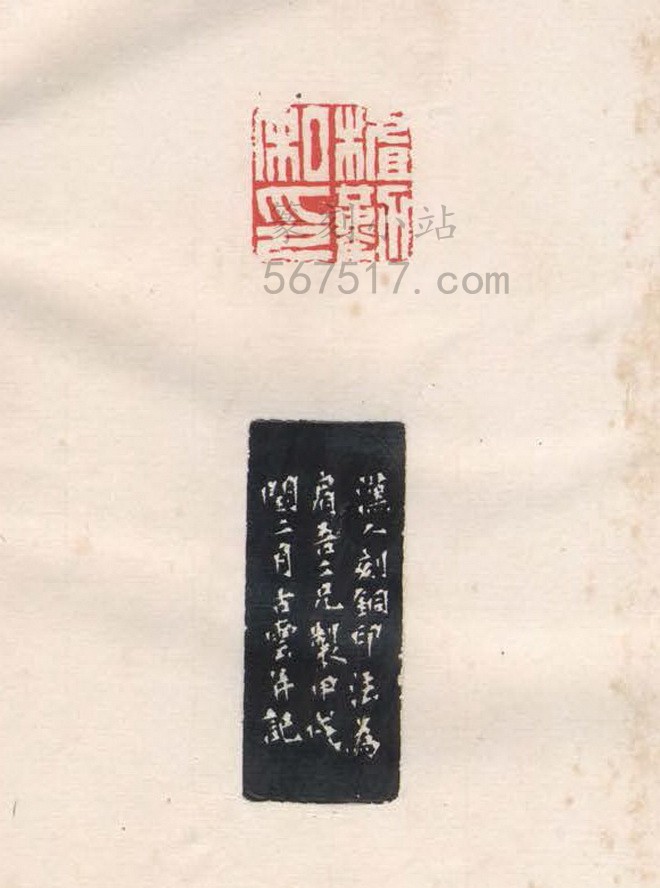 和印
篆刻小站
567517.com
漢人刻銅印法為
肩吾二兄製甲戌
閏二月古雲并記